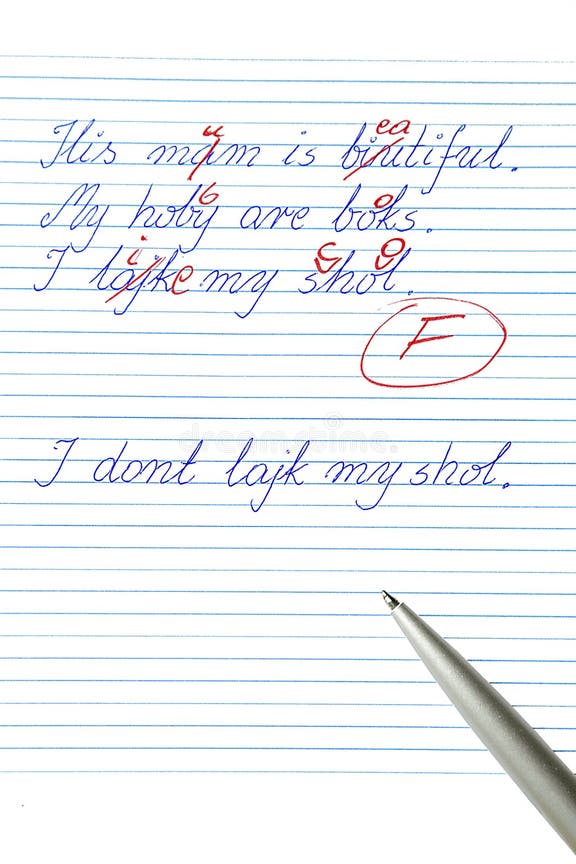 His mam is biutiful.
My hoby are boks.
I lajke my shol.
F
I dont lajk my shol.
dreamstime.